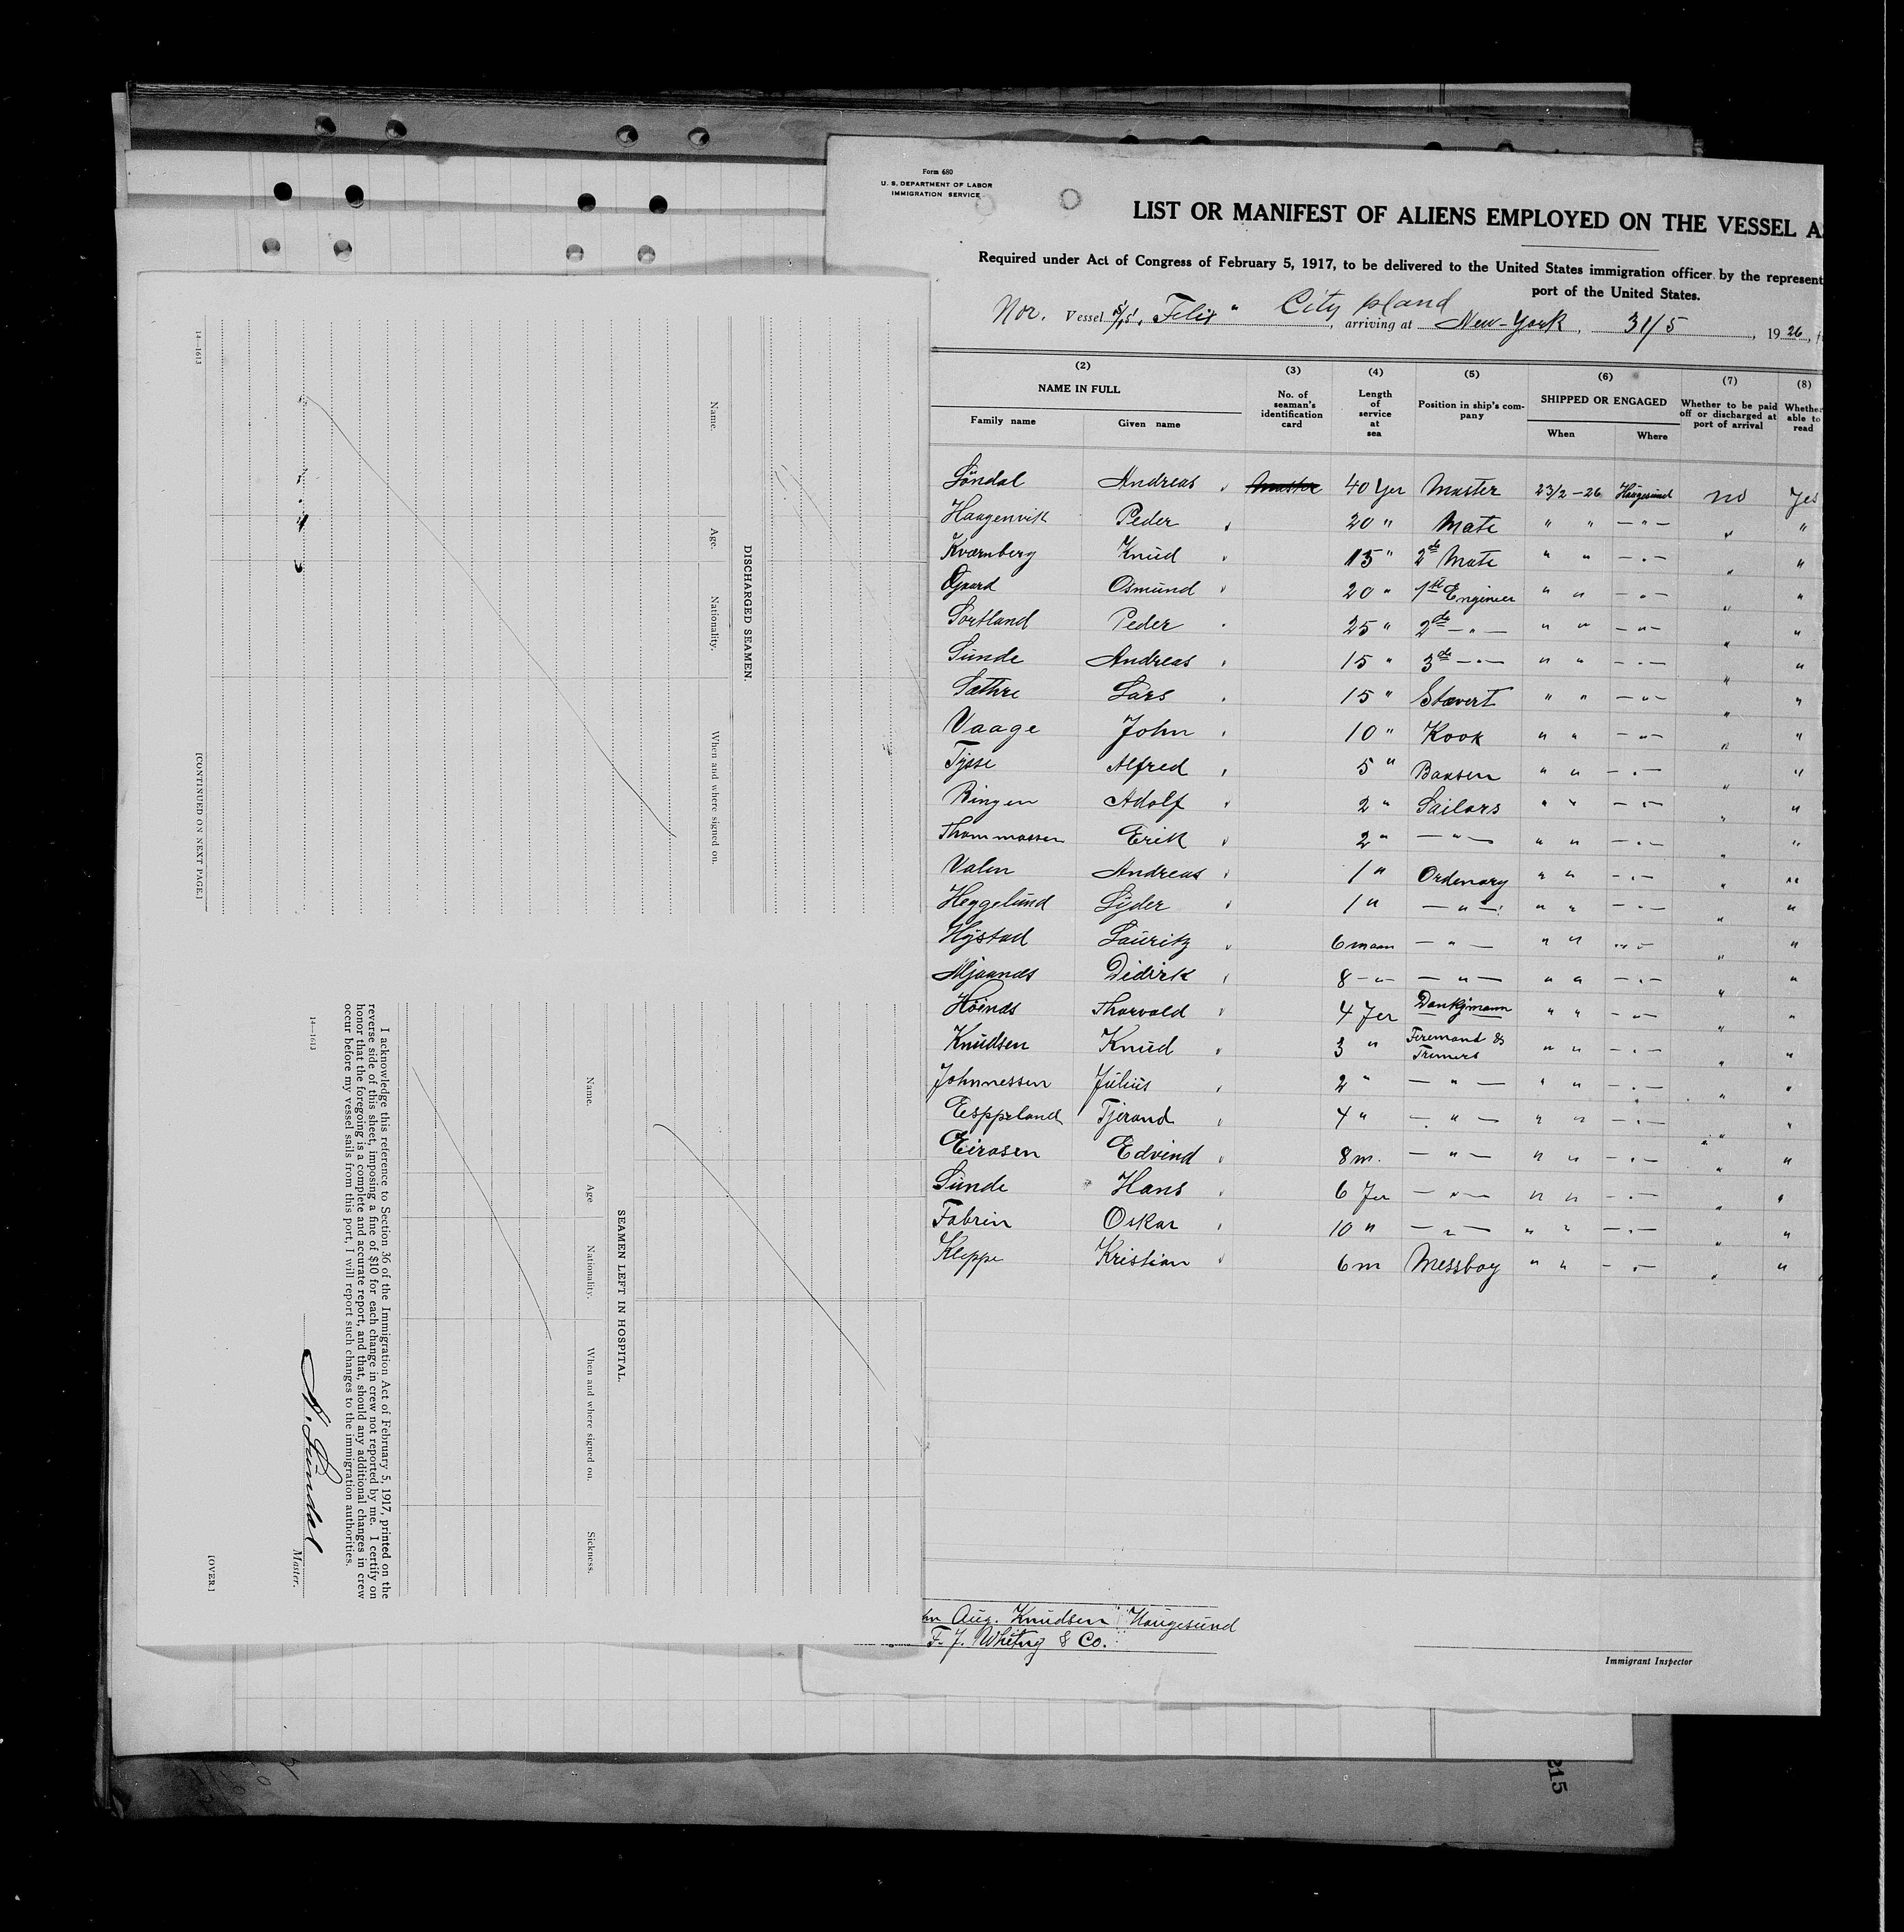 Form 680
U. S. DEPARTMENT OF LABOR
IMMIGRATION SERVICE
LIST OR MANIFEST OF ALIENS EMPLOYED ON THE VESSEL
Required under Act of Congress of February 5, 1917, to be delivered to the United States immigration officer by the represent
port of the United States.
City Island
Nor. Vessel S/S. Felix " , arriving at New-York, 31/5, 1926,
(2) (3) (4) (5) (6) (7) (8)
NAME IN FULL No. of seaman's identification card Length of service at sea Position in ship's company SHIPPED OR ENGAGED Whether to be paid off or discharged at port of arrival Whether able to read
Family name Given name When Where
Söndal Andreas Master 40 Yer Master 23/2-26 Haugesund no Yes
Haagenvik Peder 20 " Mate " " -"- " "
Kvarnberg Knud 15 " 2de Mate " " -"- " "
Ogaard Osmund 20 " 1ste Engineer " " -"- " "
Sortland Peder 25 " 2de -"- " " -"- " "
Sunde Andreas 15 " 3de -"- " " -"- " "
Sæthre Lars 15 " Stævert " " -"- " "
Vaage John 10 " Kook " " -"- " "
Tysse Alfred 5 " Baasen " " -"- " "
Ringen Adolf 2 " Sailors " " -"- " "
Thommassen Erik 2 " -"- " " -"- " "
Valen Andreas 1 " Ordenary " " -"- " "
Heggelund Lyder 1 " -"- " " -"- " "
Hystad Lauritz 6 maan -"- " " -"- " "
Mjaanæs Didirk 8 -"- -"- " " -"- " "
Höinæs Thorvald 4 Jer Dankjmann " " -"- " "
Knudsen Knud 3 " Firemand & Trimers " " -"- " "
Johnnessen Julius 2 " -"- " " -"- " "
Eesppeland Tjerand 4 " -"- " " -"- " "
Eirasen Edvind 8 m. -"- " " -"- " "
Sunde Hans 6 Jer -"- " " -"- " "
Fabrin Oskar 10 " -"- " " -"- " "
Kleppe Kristian 6 m Messboy " " -"- " "
Aug. Knudsen Haugesund
F. J. Whitng & Co.
Immigrant Inspector
215
DISCHARGED SEAMEN.
Name. Age. Nationality. When and where signed on.
14—1613
[CONTINUED ON NEXT PAGE.]
SEAMEN LEFT IN HOSPITAL.
Name. Age Nationality. When and where signed on. Sickness.
I acknowledge this reference to Section 36 of the Immigration Act of February 5, 1917, printed on the
reverse side of this sheet, imposing a fine of $10 for each change in crew not reported by me. I certify on
honor that the foregoing is a complete and accurate report, and that, should any additional changes in crew
occur before my vessel sails from this port, I will report such changes to the immigration authorities.
14—1613
A. Söndal
Master.
[OVER.]